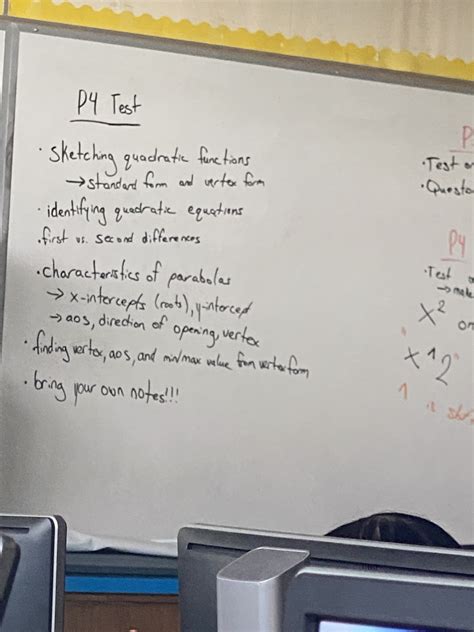 P4 Test
· Sketching quadratic functions
→ standard form and vertex form
· identifying quadratic equations
· first vs. second differences
· characteristics of parabolas
→ x-intercepts (roots), y-intercept
→ aos, direction of opening, vertex
· finding vertex, aos, and min/max value from vertex form
· bring your own notes!!!
P
· Test
P4
· Test
→ make
x²
x^12
1 is